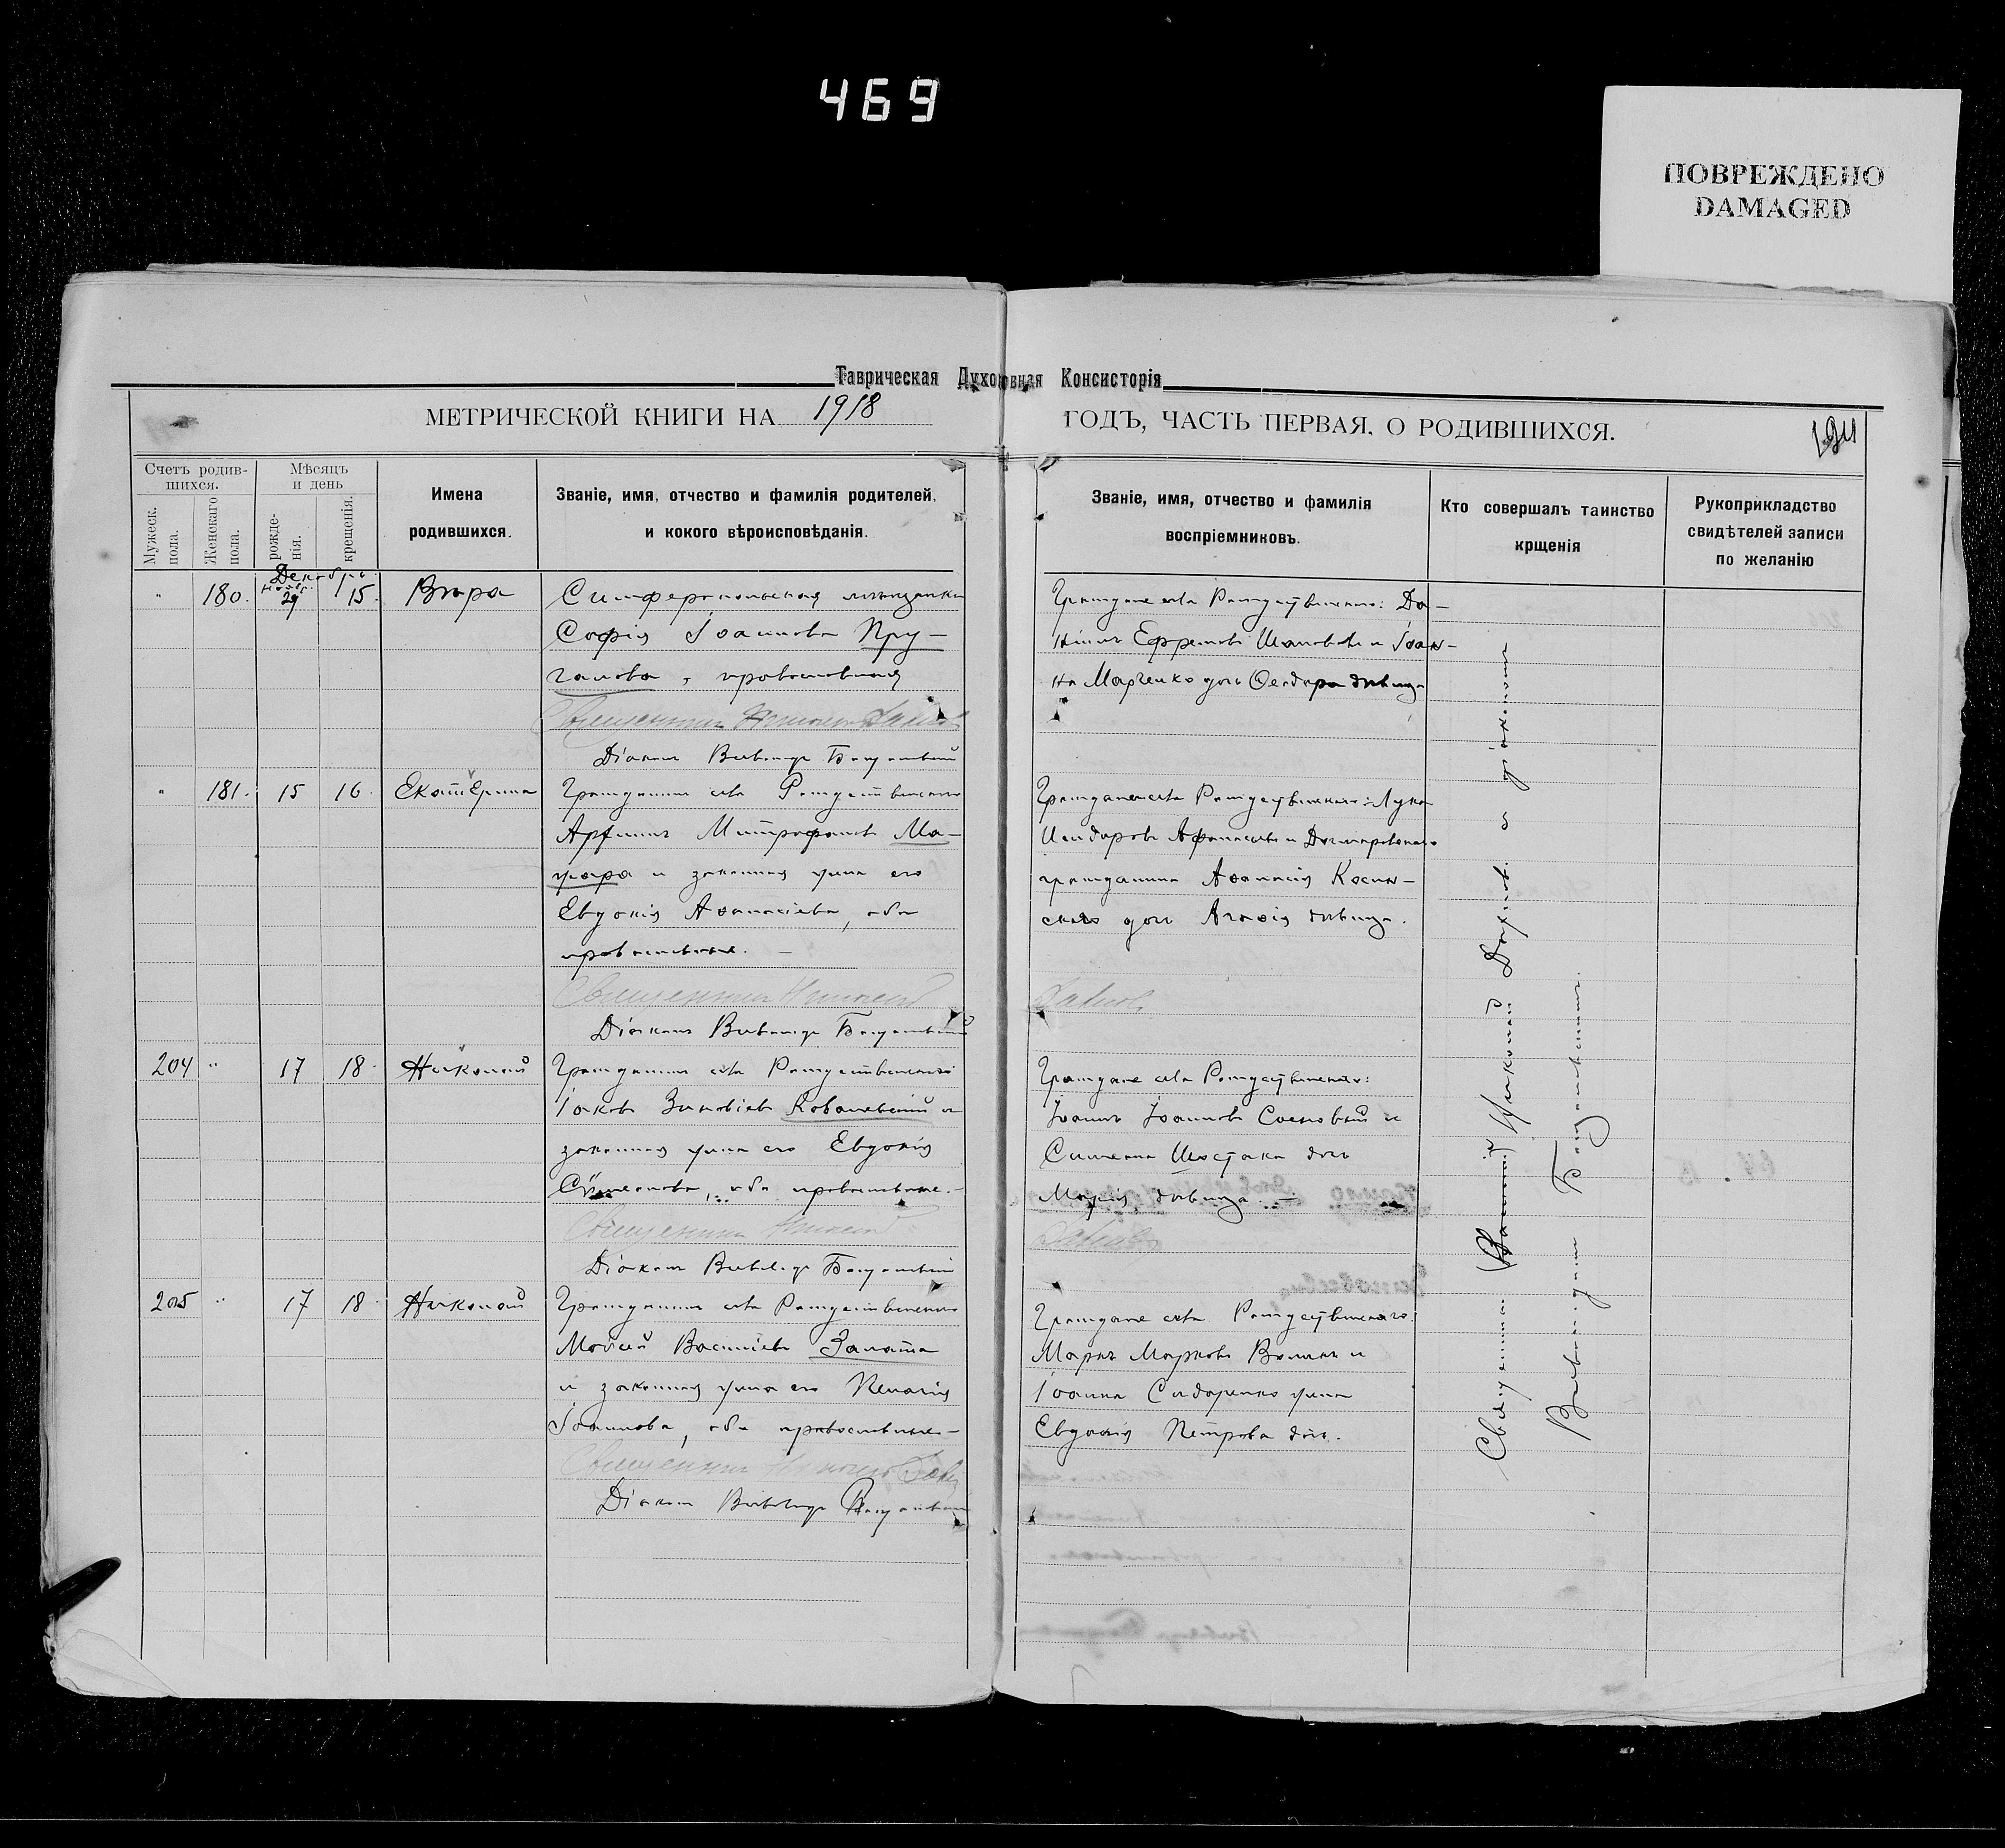 469
ПОВРЕЖДЕНО
DAMAGED
Таврическая Духовная Консисторія
МЕТРИЧЕСКОЙ КНИГИ НА 1918
ГОДЪ, ЧАСТЬ ПЕРВАЯ, О РОДИВШИХСЯ.
Счетъ родив-
шихся.
Мужеск.
пола.
Женскаго
пола.
Мѣсяцъ
и день
рожде-
нія.
крещенія.
Имена
родившихся.
Званіе, имя, отчество и фамилія родителей,
и кокого вѣроисповѣданія.
Званіе, имя, отчество и фамилія
воспріемниковъ.
Кто совершалъ таинство
крщенія
Рукоприкладство
свидѣтелей записи
по желанію
Декабрь
180. 29 15. Вѣра
Симферопольская мѣщанка
Софія Іоаннова Пру-
галова, православная
Священникъ Николай
Діаконъ Всеволодъ
Граждане села Рождественскаго: Да-
ніилъ Ефремовъ и Іоан-
на Марченко дочь Ѳеодора дѣвица
181. 15 16. Екатерина
Гражданинъ села Рождественскаго
Митрофановъ Ма-
и законная жена его
Евдокія Аѳанасіева, оба
православные. —
Священникъ Николай
Діаконъ Всеволодъ
Граждане села Рождественскаго: Лука
гражданина Аѳанасія Косин-
скаго дочь Агаѳія дѣвица.
204 " 17 18. Николай
Гражданинъ села Рождественскаго
Іаковъ Зиновіевъ Ковалевскій и
законная жена его Евдокія
Симеонова, оба православные. -
Священникъ Николай
Діаконъ Всеволодъ
Граждане села Рождественскаго:
Іоаннъ Іоанновъ Сосновый и
Симеона Шостака дочь
Марія, дѣвица. —
205 " 17 18. Николай
Гражданинъ села Рождественскаго
Мойсей Василіевъ Залата
и законная жена его Пелагія
Іоаннова, оба православные -
Священникъ Николай
Діаконъ Всеволодъ
Граждане села Рождественскаго
Маркъ Марковъ и
Іоанна Сидоренко жена
Евдокія Петрова дочь.
Священникъ Николай съ діакономъ
Всеволодомъ